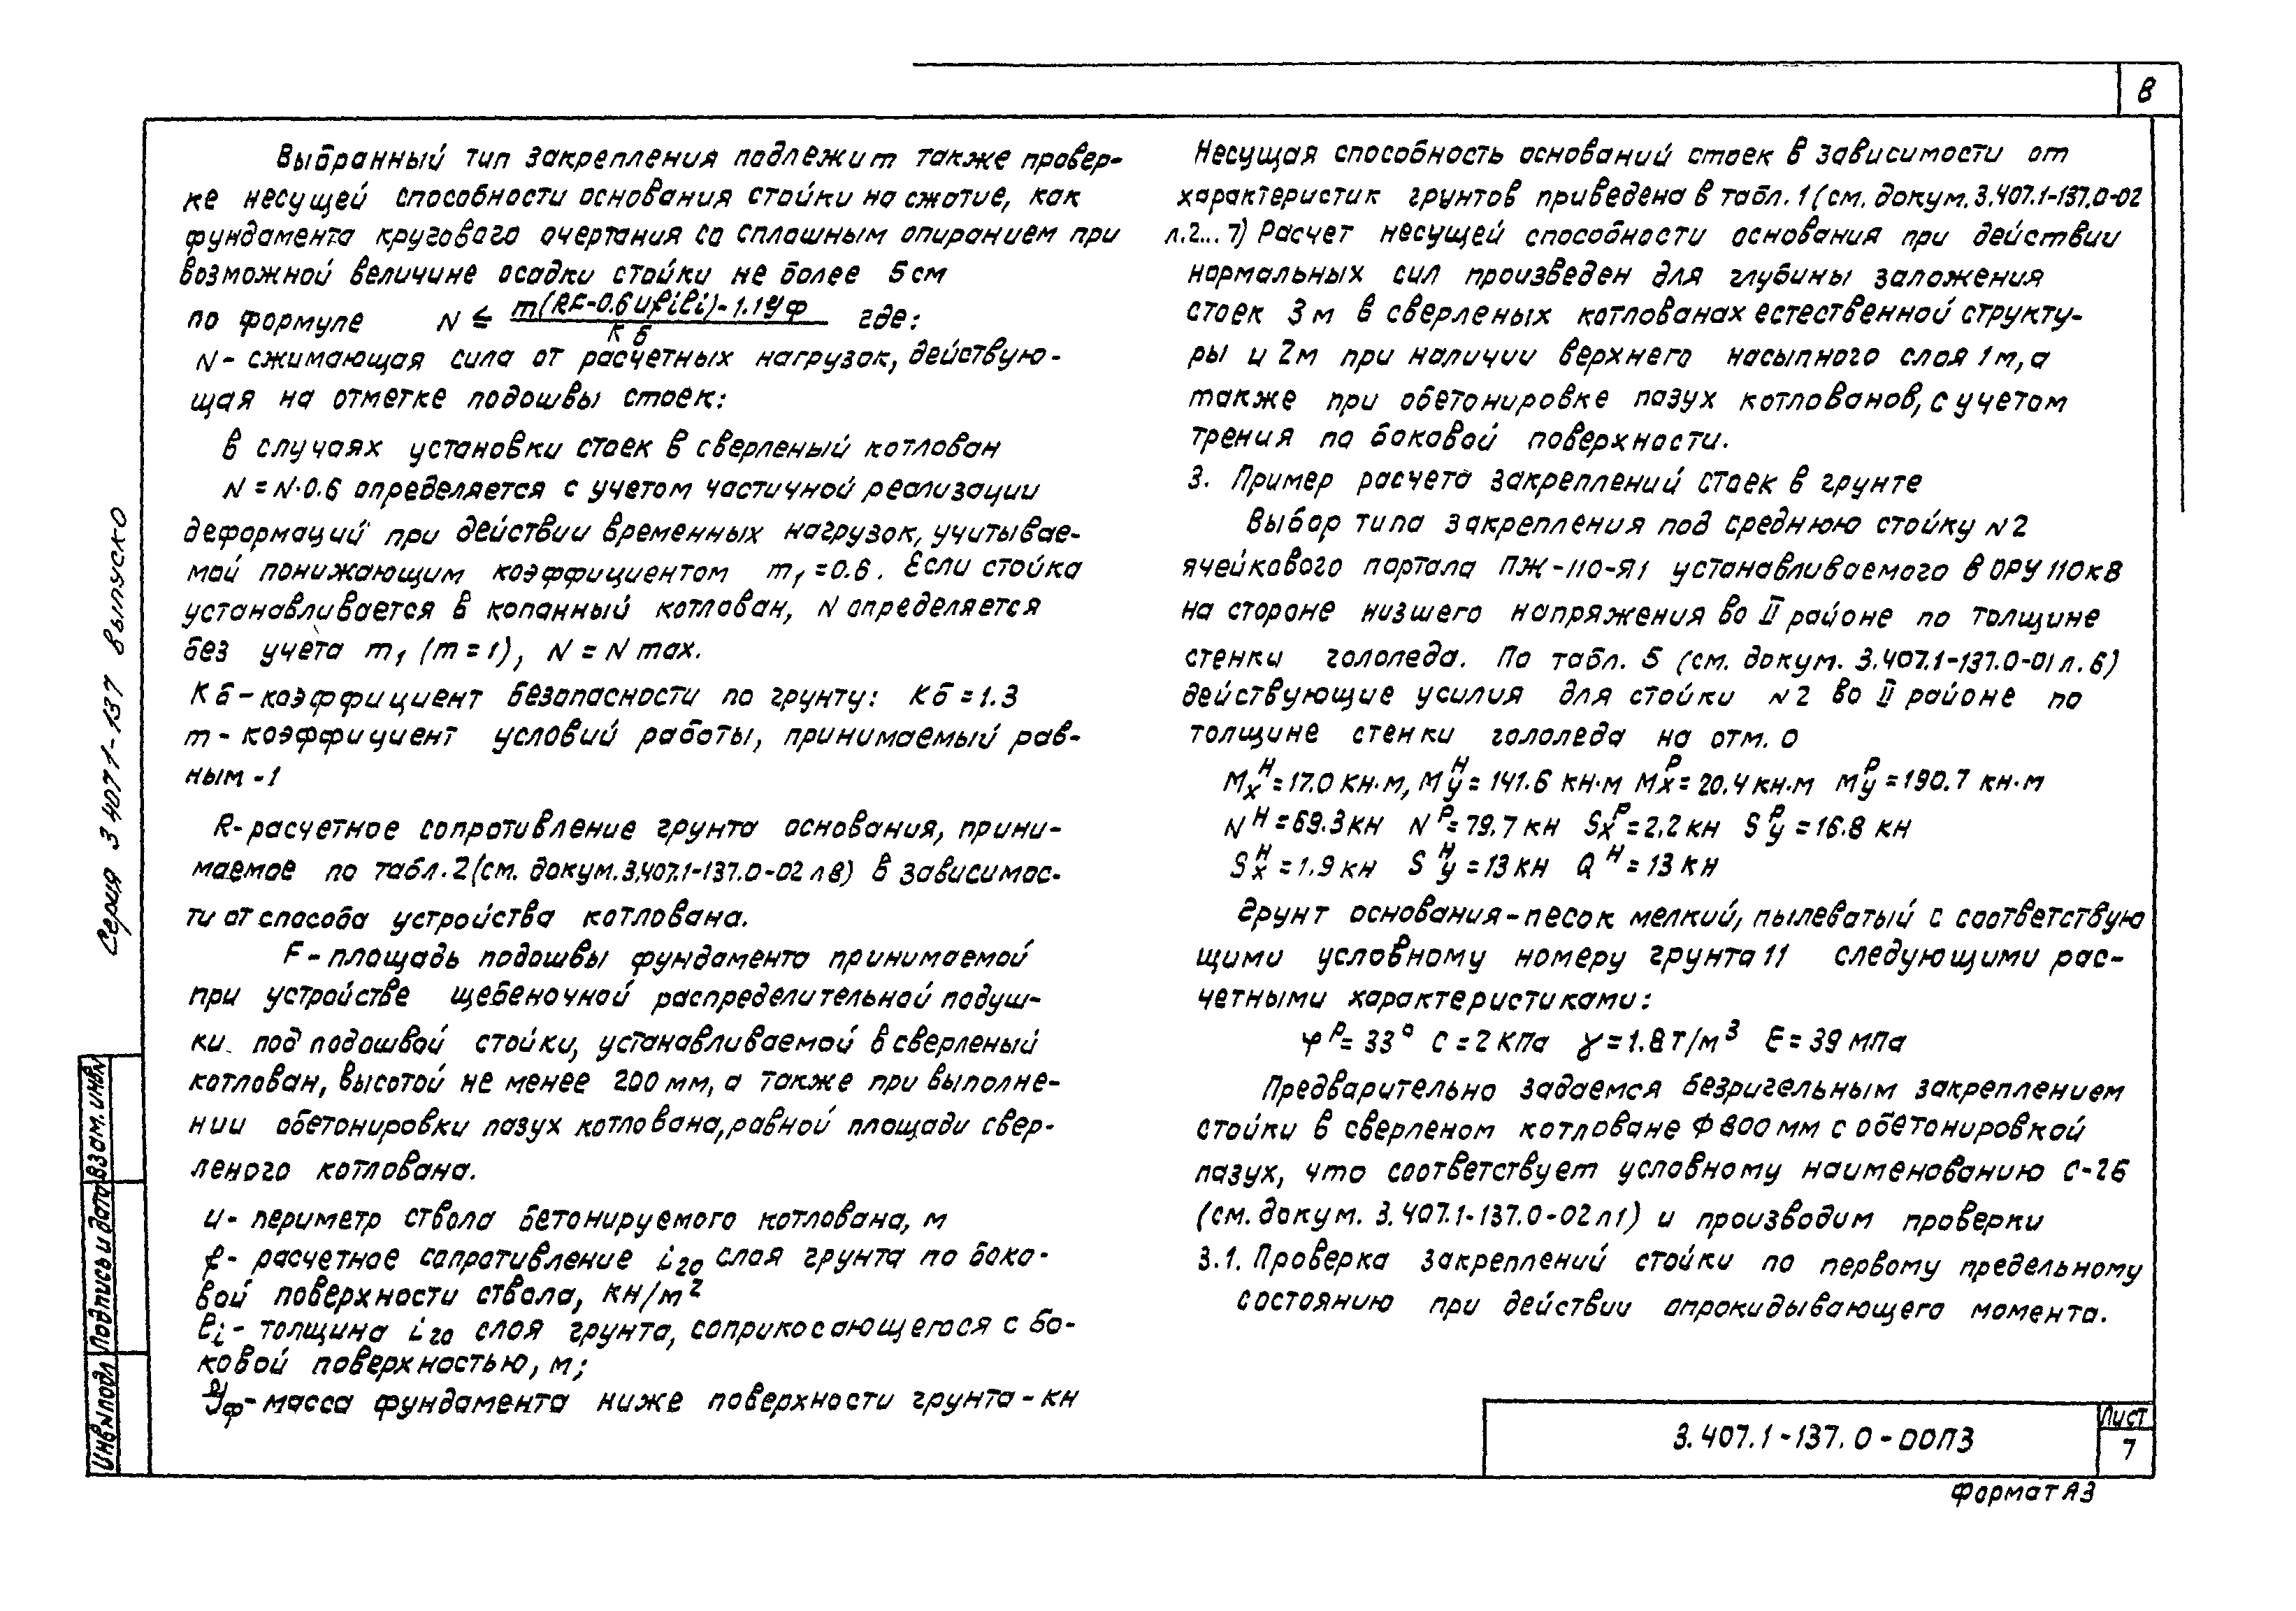 8
Выбранный тип закрепления подлежит также провер-
ке несущей способности основания стойки на сжатие, как
фундамента кругового очертания со сплошным опиранием при
возможной величине осадки стойки не более 5 см
по формуле N ≤ m(RF-0.6ufili)-1.1Yф / Кб где:
N - сжимающая сила от расчетных нагрузок, действую-
щая на отметке подошвы стоек:
В случаях установки стоек в сверленый котлован
N = N·0.6 определяется с учетом частичной реализации
деформаций при действии временных нагрузок, учитывае-
мой понижающим коэффициентом m₁ = 0.6. Если стойка
устанавливается в копанный котлован, N определяется
без учета m₁ (m = 1), N = N max.
Кб - коэффициент безопасности по грунту: Кб = 1.3
m - коэффициент условий работы, принимаемый рав-
ным - 1
R - расчетное сопротивление грунта основания, прини-
маемое по табл. 2 (см. докум. 3.407.1-137.0-02 л 8) в зависимос-
ти от способа устройства котлована.
F - площадь подошвы фундамента принимаемой
при устройстве щебеночной распределительной подуш-
ки под подошвой стойки, устанавливаемой в сверленый
котлован, высотой не менее 200 мм, а также при выполне-
нии обетонировки пазух котлована, равной площади свер-
леного котлована.
u - периметр ствола бетонируемого котлована, м
f - расчетное сопротивление i го слоя грунта по боко-
вой поверхности ствола, кн/m²
li - толщина i го слоя грунта, соприкосающегося с бо-
ковой поверхностью, м;
Yф - масса фундамента ниже поверхности грунта - кн
Несущая способность оснований стоек в зависимости от
характеристик грунтов приведена в табл. 1 (см. докум. 3.407.1-137.0-02
л. 2... 7) Расчет несущей способности основания при действии
нормальных сил произведен для глубины заложения
стоек 3 м в сверленых котлованах естественной структу-
ры и 2 м при наличии верхнего насыпного слоя 1 м, а
также при обетонировке пазух котлованов, с учетом
трения по боковой поверхности.
3. Пример расчета закреплений стоек в грунте
Выбор типа закрепления под среднюю стойку N 2
ячейкового портала ПЖ-110-Я1 устанавливаемого в ОРУ 110 кВ
на стороне низшего напряжения во II районе по толщине
стенки гололеда. По табл. 5 (см. докум. 3.407.1-137.0-01 л. 6)
действующие усилия для стойки N 2 во II районе по
толщине стенки гололеда на отм. 0
Mxᴴ = 17.0 кн·м, Myᴴ = 141.6 кн·м Mxᴾ = 20.4 кн·м Myᴾ = 190.7 кн·м
Nᴴ = 69.3 кн Nᴾ = 79.7 кн Sxᴾ = 2.2 кн Syᴾ = 16.8 кн
Sxᴴ = 1.9 кн Syᴴ = 13 кн Qᴴ = 13 кн
Грунт основания - песок мелкий, пылеватый с соответствую
щими условному номеру грунта 11 следующими рас-
четными характеристиками:
φᴾ = 33° С = 2 КПа γ = 1.8 Т/м³ Е = 39 МПа
Предварительно задаемся безригельным закреплением
стойки в сверленом котловане Ф 800 мм с обетонировкой
пазух, что соответствует условному наименованию С-26
(см. докум. 3.407.1-137.0-02 л 1) и производим проверки
3.1. Проверка закреплений стойки по первому предельному
состоянию при действии опрокидывающего момента.
Серия 3 407 1-137 выпуск 0
Взам. инв N
Подпись и дата
Инв N подл
3.407.1-137.0-00ПЗ
Лист
7
Формат А3